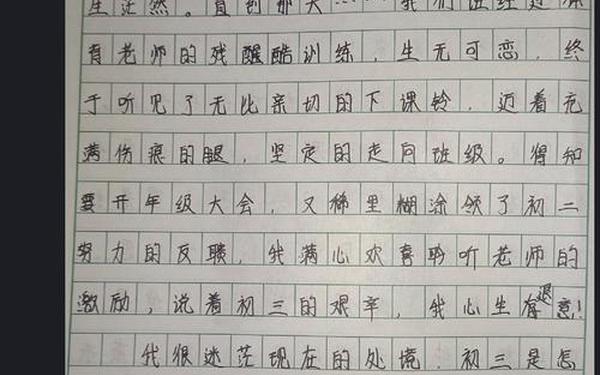 生茫然。直到那天……我们班经过体
育老师的残酷训练，生无可恋，终
于听见了无比亲切的下课铃，迈着充
满伤痕的腿，坚定的走向班级。得知
要开年级大会，又稀里糊涂领了初二
努力的反馈，我满心欢喜聆听老师的
激励，说着初三的艰辛，我心生有退意！
我很迷茫现在的处境，初三是怎